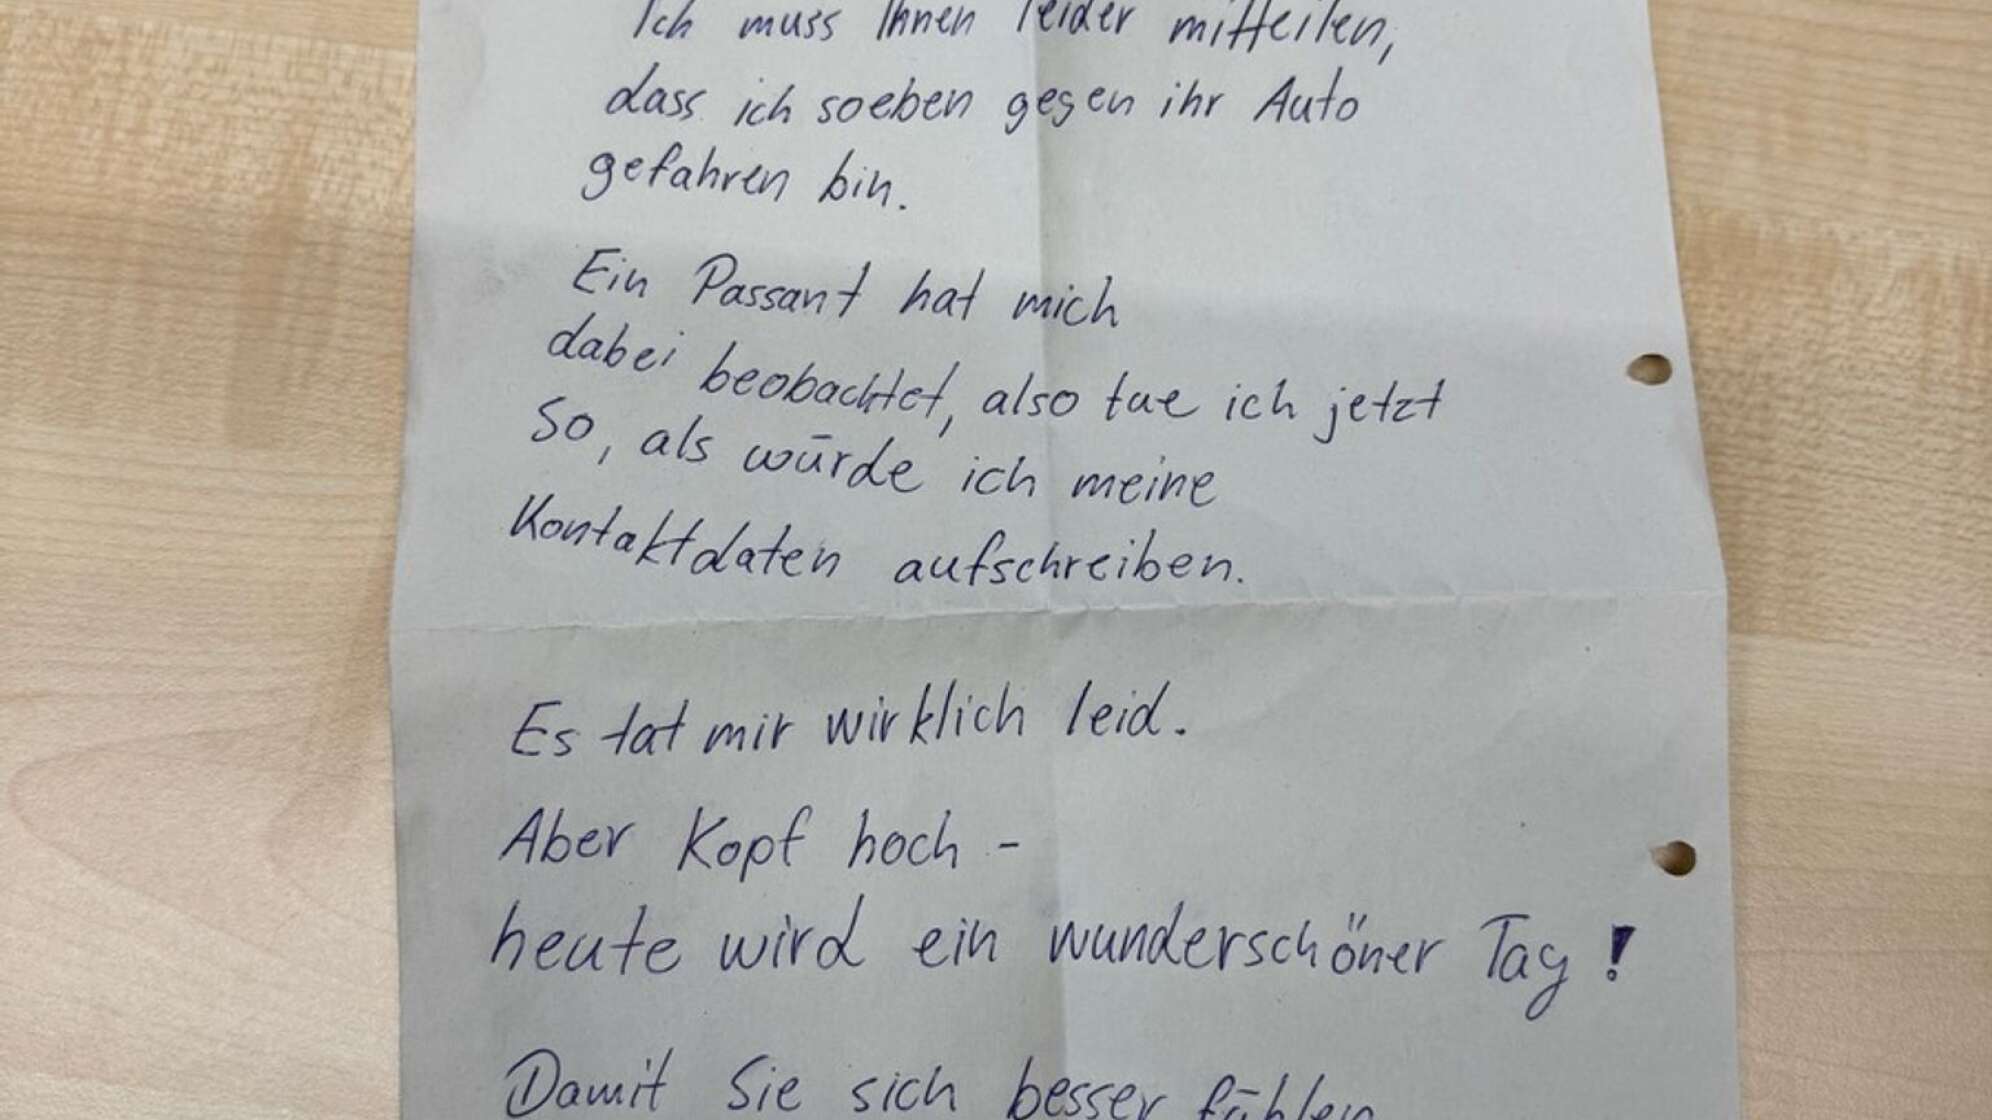 Ich muss Ihnen leider mitteilen,
dass ich soeben gegen ihr Auto
gefahren bin.
Ein Passant hat mich
dabei beobachtet, also tue ich jetzt
So, als würde ich meine
Kontaktdaten aufschreiben.
Es tat mir wirklich leid.
Aber Kopf hoch -
heute wird ein wunderschöner Tag!
Damit Sie sich besser fühlen